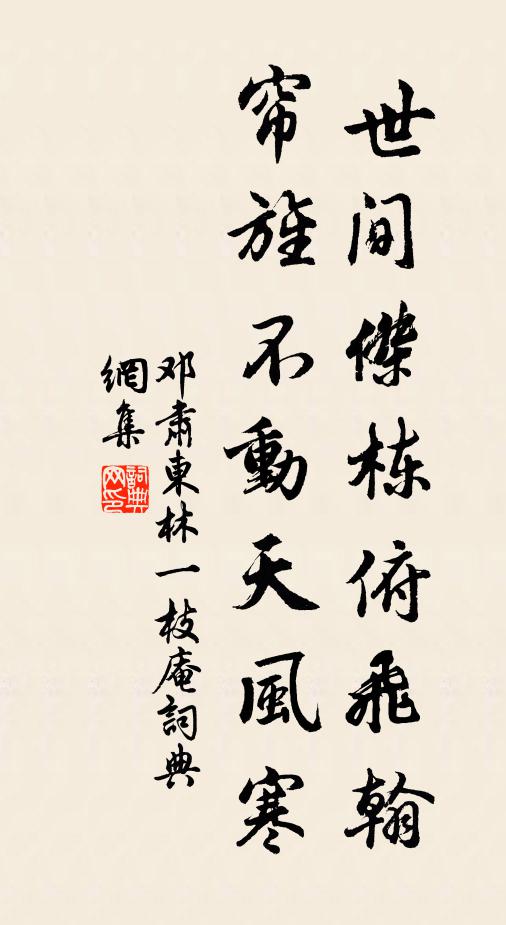 世间傑栋俯飛翰
帘旌不動天風寒
邓肅東林一枝庵詞典
網集
詞典網印